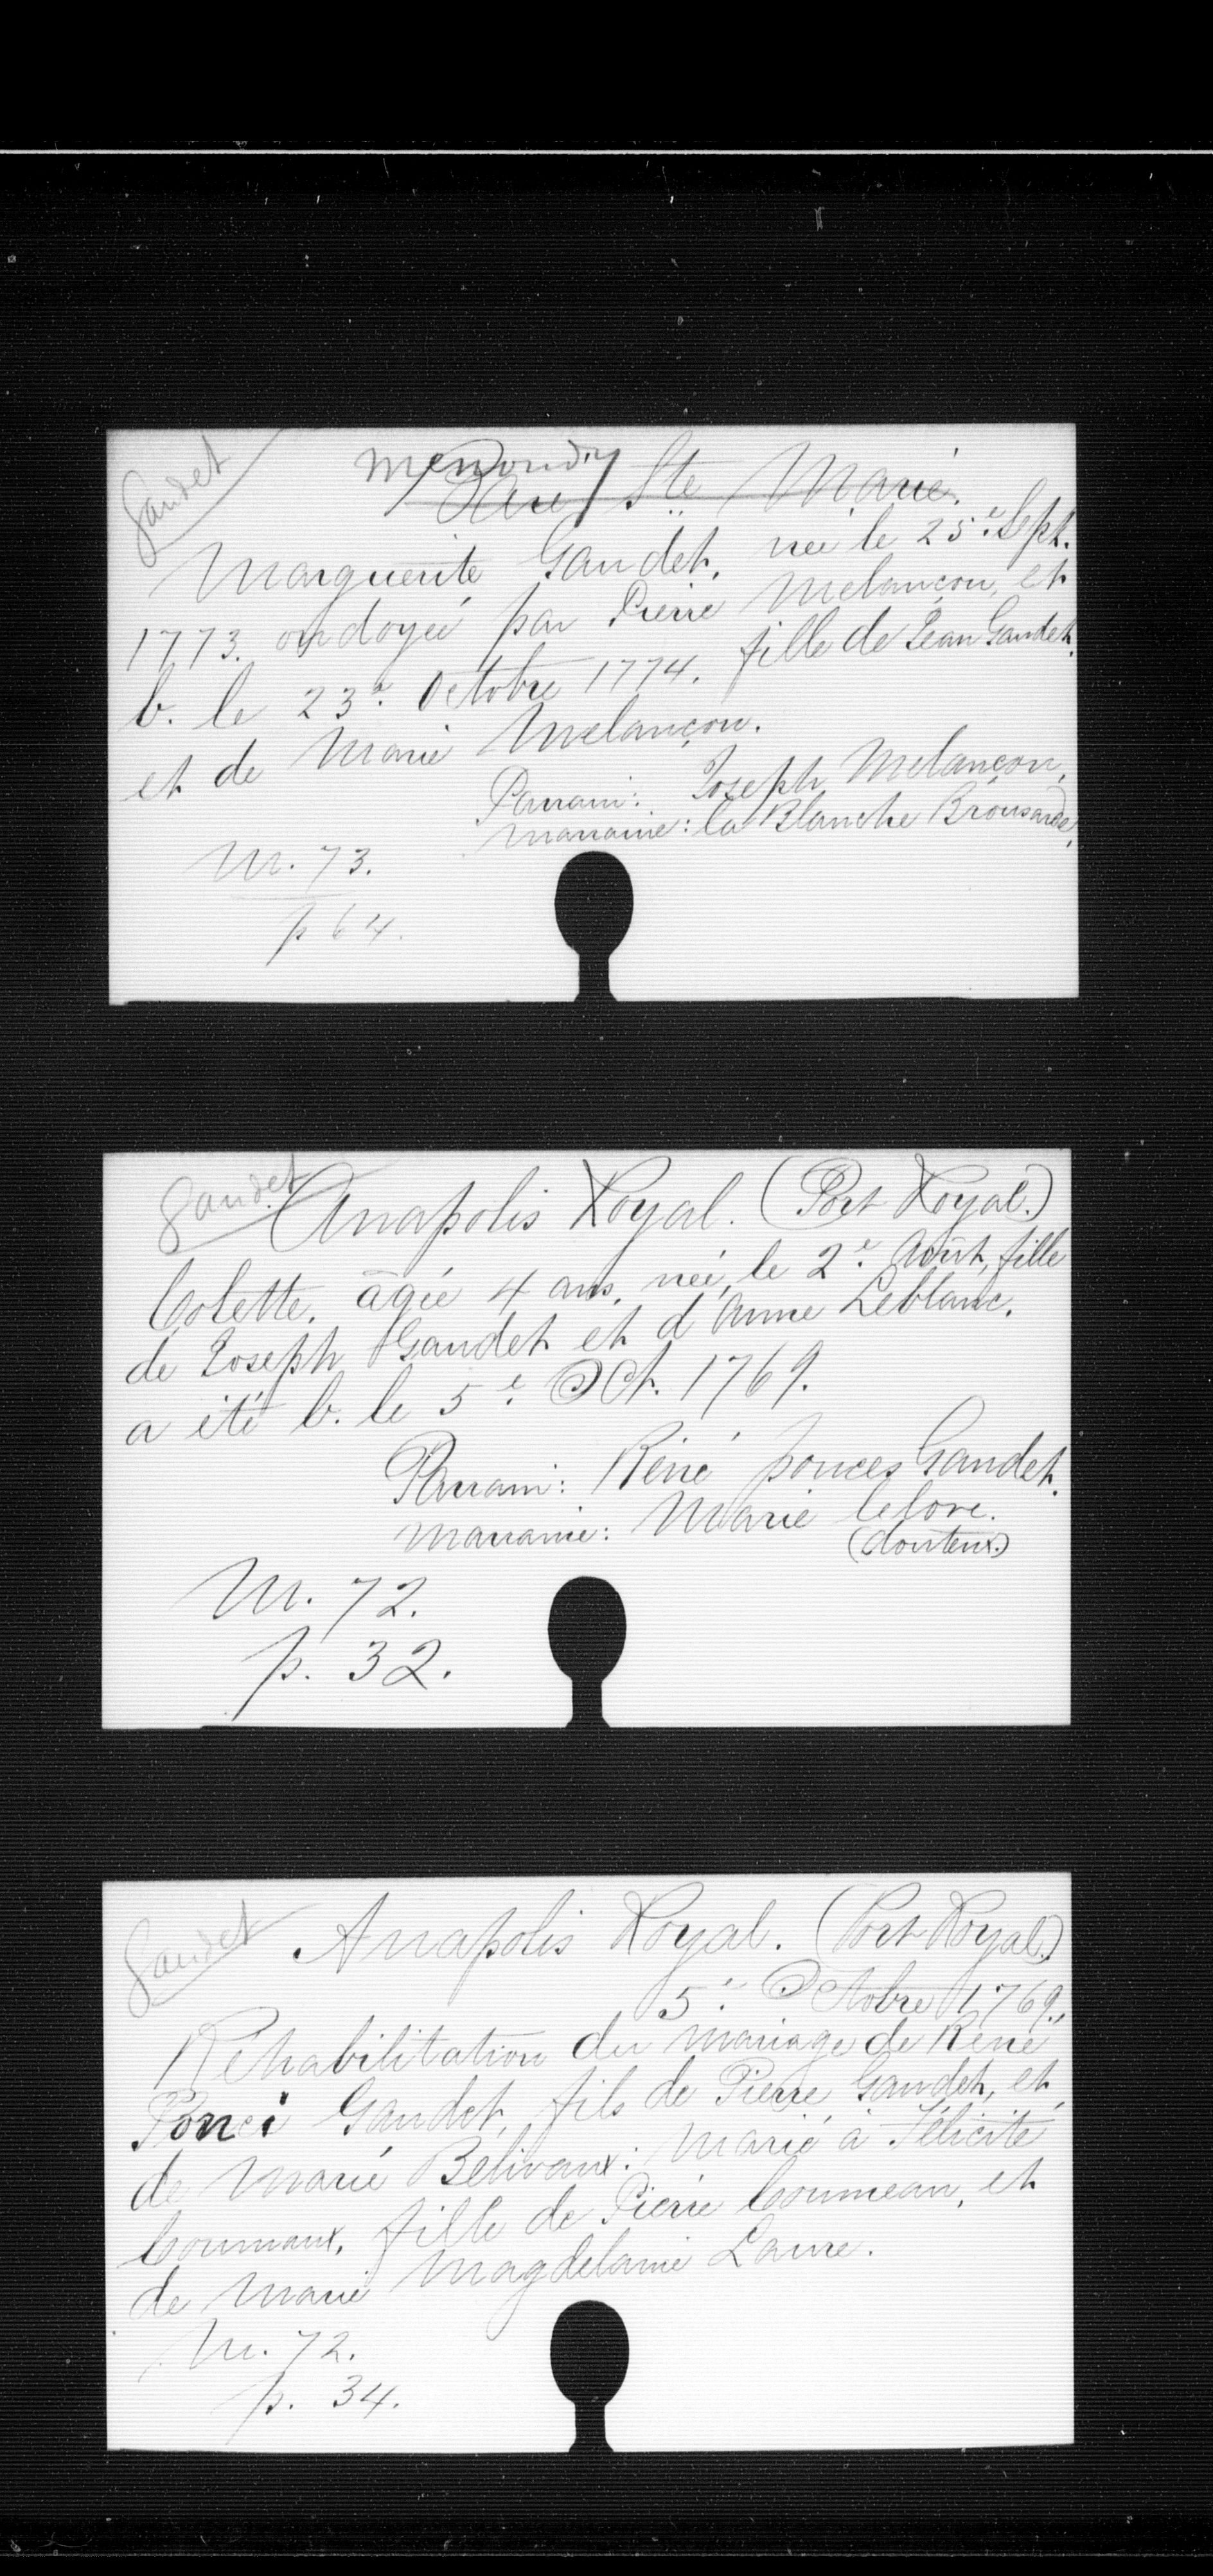 Gaudet
Menoudy
Baie Ste Marie.
Marguerite Gaudet, née le 25e Sept.
1773. ondoyée par Pierre Melançon, et
b. le 23e Octobre 1774. fille de Jean Gaudet.
et de Marie Melançon.
Parrain: Joseph Melançon,
Marraine: la Blanche Brousarde,
M. 73.
p 64.
Gaudet
Anapolis Royal. (Port Royal.)
Colette, âgée 4 ans, née le 2e Août, fille
de Joseph Gaudet et d'Anne Leblanc.
a été b. le 5e Oct. 1769.
Parrain: Réné ponces Gaudet.
Marraine: Marie lelore.
(douteux.)
M. 72.
p. 32.
Gaudet
Anapolis Royal. (Port Royal.)
5e Octobre 1769.
Réhabilitation du mariage de Réné
Ponci Gaudet, fils de Pierre Gaudet, et
de Marie Belivaux: Marié à Félicité
Coumaux, fille de Pierre Coumeau, et
de Marie Magdelaine Laure.
M. 72.
p. 34.